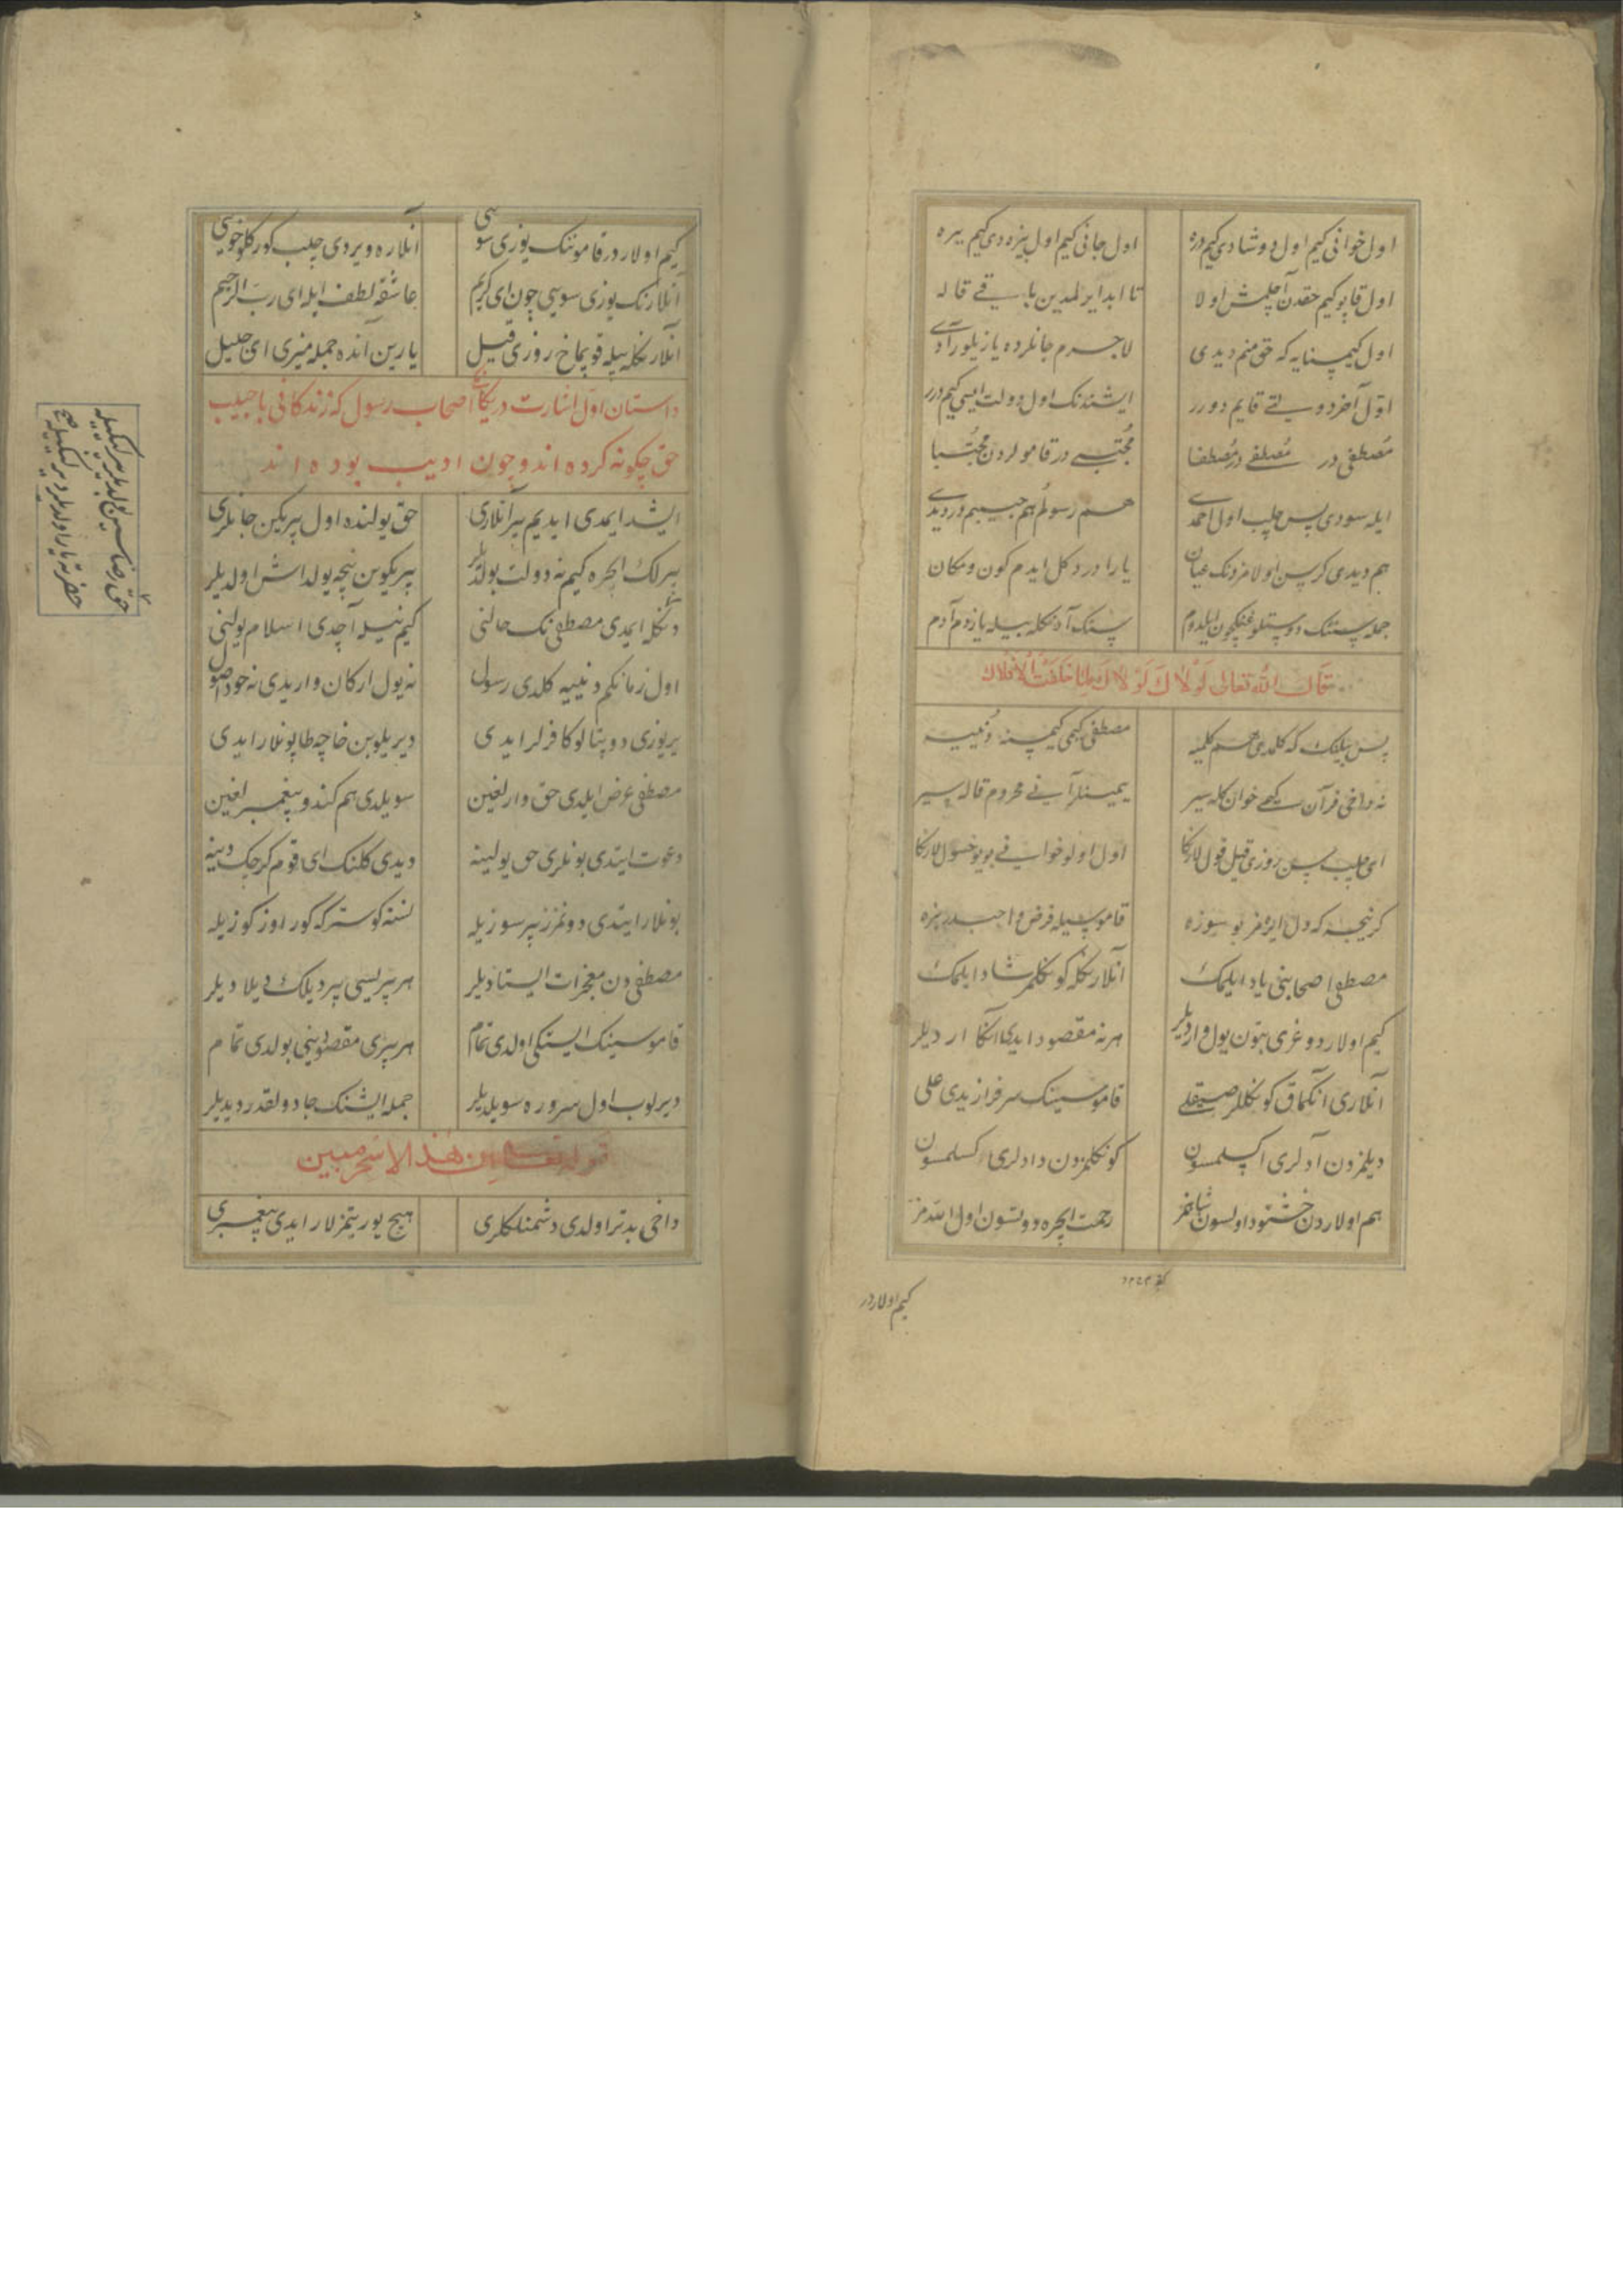 اول خوانی کیم اول دوشادی کیم دره اول جانی کیم اول بیزه دی کیم یره
اول قاپو کیم حقدن آچلمش اولا تا ابد ایرلمدین باقی قاله
اول کیمسنایه که حق منم دیدی لاجرم جانلرده یازیلور آدی
اول آخر دوستی قایم دورر ایشندنک اول دولت ایسی کیم درر
مصطفی در مصطفی در مصطفا مجتبی در قامولردن مجتبا
ایله سودی پس چلب اول احمدی هم رسولم هم حبیبم دردیدی
هم دیدی کر سن اولامزدنک عیان یارادور دکل ایدم کون و مکان
جمله سنک دوستلوغنکچون ایلدوم سنک آدنکله بیله یازدم آدم
قال الله تعالی لولاک لولاک لما خلقت الافلاک
پس بیلنک که کلمدی هم کلمیه مصطفی کبمی کیمسنه دنییه
نه داخی قرآن کبی خوان کله سیر یمینلر آنی محروم قاله سیر
ای چلب سن روزی قیل قول لارنکا اول اولو خوانی بویوخسول لارنکا
کرنیجه که دل ایرمز بو سوزه قامو سیله فرض واجبدر بزه
مصطفی اصحابنی یاد ایلمک انلارنکله کونکلمز شاد ایلمک
کیم اولار دوغری بتون یول واردیلر هر نه مقصود ایدی انکا اردیلر
انلاری انکماق کونکللر صیقلی قاموسینک سرفرازیدی علی
دیلمزدن آدلری اکسلمسون کونکلمزدن دادلری کسلمسون
هم اولاردن خشنود اولسون شاهمز رحمت ایچره دوتسون اول اللهمز
کیم اولاردر
کیم اولاردر قامونک یوزی سویی انلاره ویردی چلب کورکلو خویی
انلارنک یوزی سویی چون ای کریم عاشقه لطف ایله ای رب الرحیم
انلارنکله بیله قوپماخ روزی قیل یارین آنده جمله منیزی ای جلیل
داستان اول اشارت دریکانکی اصحاب رسول که زندکانی با حبیب
حق چکونه کرده اند و چون ادیب بوده اند
ایشد ایمدی ایدیم بیر آنلاری حق یولنده اول بیریکن جانلری
بیرلک ایچره کیم نه دولت بولدیلر بیریکوبن نیچه یولداش اولدیلر
دنکله ایمدی مصطفی نک حالنی کیم نیله آچدی اسلام یولنی
اول زمانکم دنییه کلدی رسول نه یول ارکان واریدی نه خود اصول
یریوزی دوپتالو کافرلر ایدی دیریلوبن خاچه طاپونلار ایدی
مصطفی عرض ایلدی حق وارلغین سویلدی هم کندو پیغمبرلغین
دعوت ایتدی بونلری حق یولینه دیدی کلنک ای قوم کرچک دینه
بونلار ایتدی دونمزز بیر سوزیله نسنه کوستر که کوراوز کوزیله
مصطفی دن معجزات ایستادیلر هر بریسی بیر دیلک دیلادیلر
قاموسینک ایستکی اولدی تمام هر بیری مقصودینی بولدی تمام
دیرلوب اول سروره سویلدیلر جمله ایشنک جادولقدر دیدیلر
قوله تعالی ان هذا الا سحر مبین
داخی بدتر اولدی دشمنلکلری هیچ یوریتمزلار ایدی پیغمبری
حق رضاسین بولدیلر بیرلکیله
حضرته یار اولدیلر دیرلکیله صح